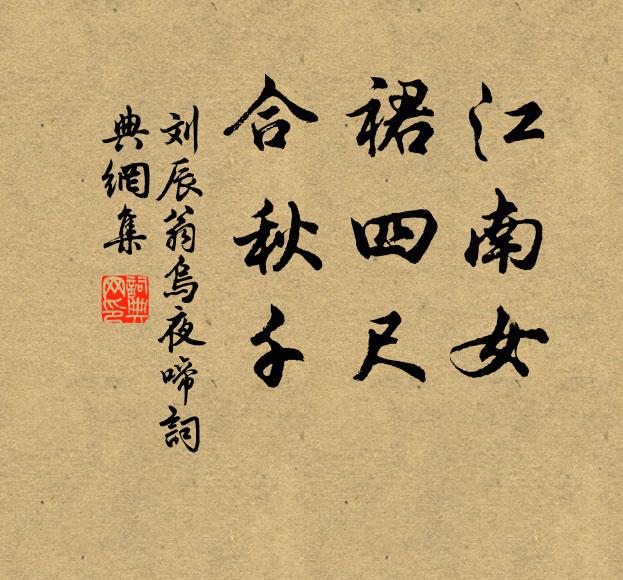 江南女
裙四尺
合秋千
刘辰翁乌夜啼詞
典網集
詞典
网印